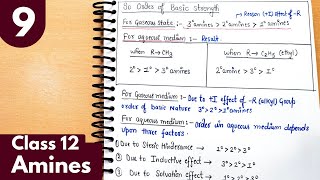 9
Class 12
Amines
So Order of Basic strength
→ Reason (+I) effect of -R
For Gaseous State :- 3° amines > 2° amines > 1° amines
For aqueous medium :- Result.
when R → CH3
2° > 1° > 3° amines
when R → C2H5 (Ethyl)
2° amine > 3° > 1°
For Gaseous medium :- Due to +I effect of -R (alkyl) Group
order of basic Nature 3° > 2° > 1° amines
For aqueous medium :- Order in aqueous medium depends
upon three factors.
① Due to Steric Hinderance → 1° > 2° > 3°
② Due to Inductive effect → 3° > 2° > 1°
③ Due to Solvation effect → 1° > 2° > 3°